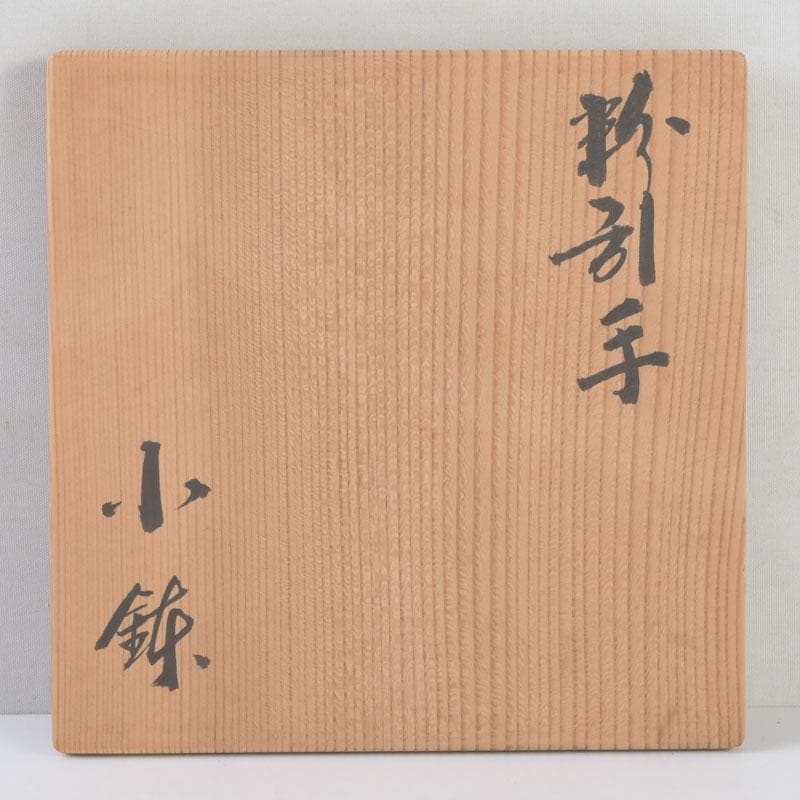 粉引手
小鉢